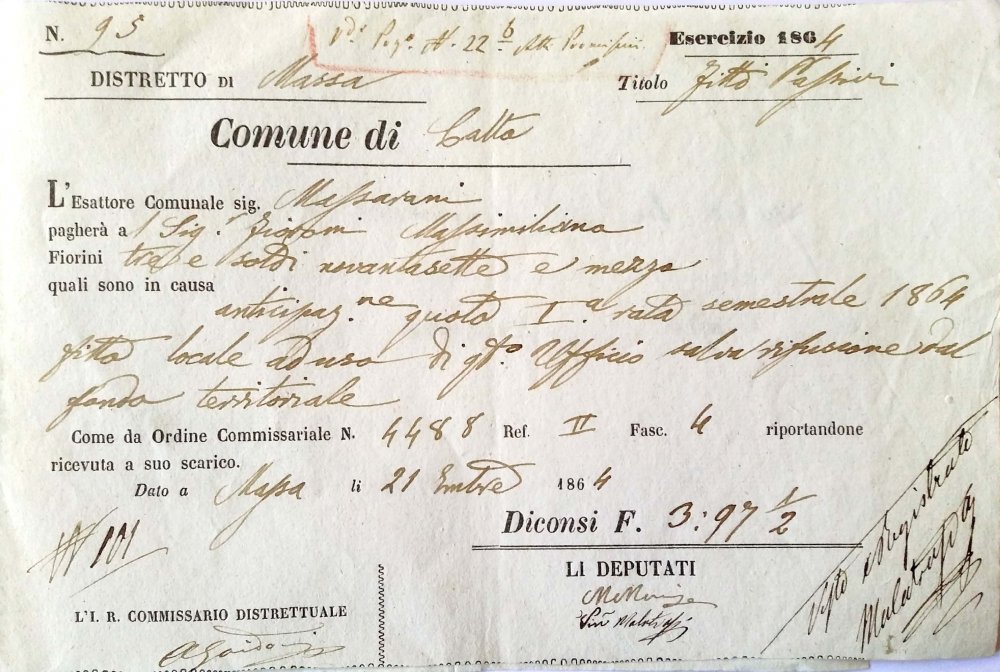 N. 95
Pog.o N. 22 b
Esercizio 1864
DISTRETTO DI Massa
Titolo Fitti Passivi
Comune di Calto
L'Esattore Comunale sig. Massarani
pagherà a l Sig.r Fioroni Massimiliano
Fiorini tre e soldi novantasette e mezzo
quali sono in causa
anticipaz.ne quota I.a rata semestrale 1864
fitto locale ad uso di q.to Ufficio salva rifusione dal
fondo territoriale
Come da Ordine Commissariale N. 4488 Ref. II Fasc. 4 riportandone
ricevuta a suo scarico.
Dato a Massa li 21 Embre 1864
Diconsi F. 3:97 1/2
N 101
LI DEPUTATI
L'I. R. COMMISSARIO DISTRETTUALE
Visto e Registrato